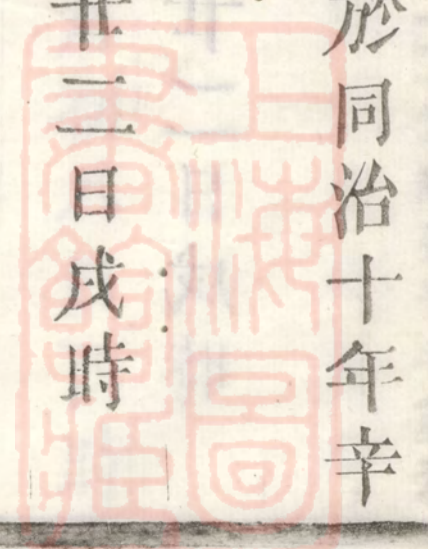 於同治十年辛
廿二日戌時
上海圖
書館藏